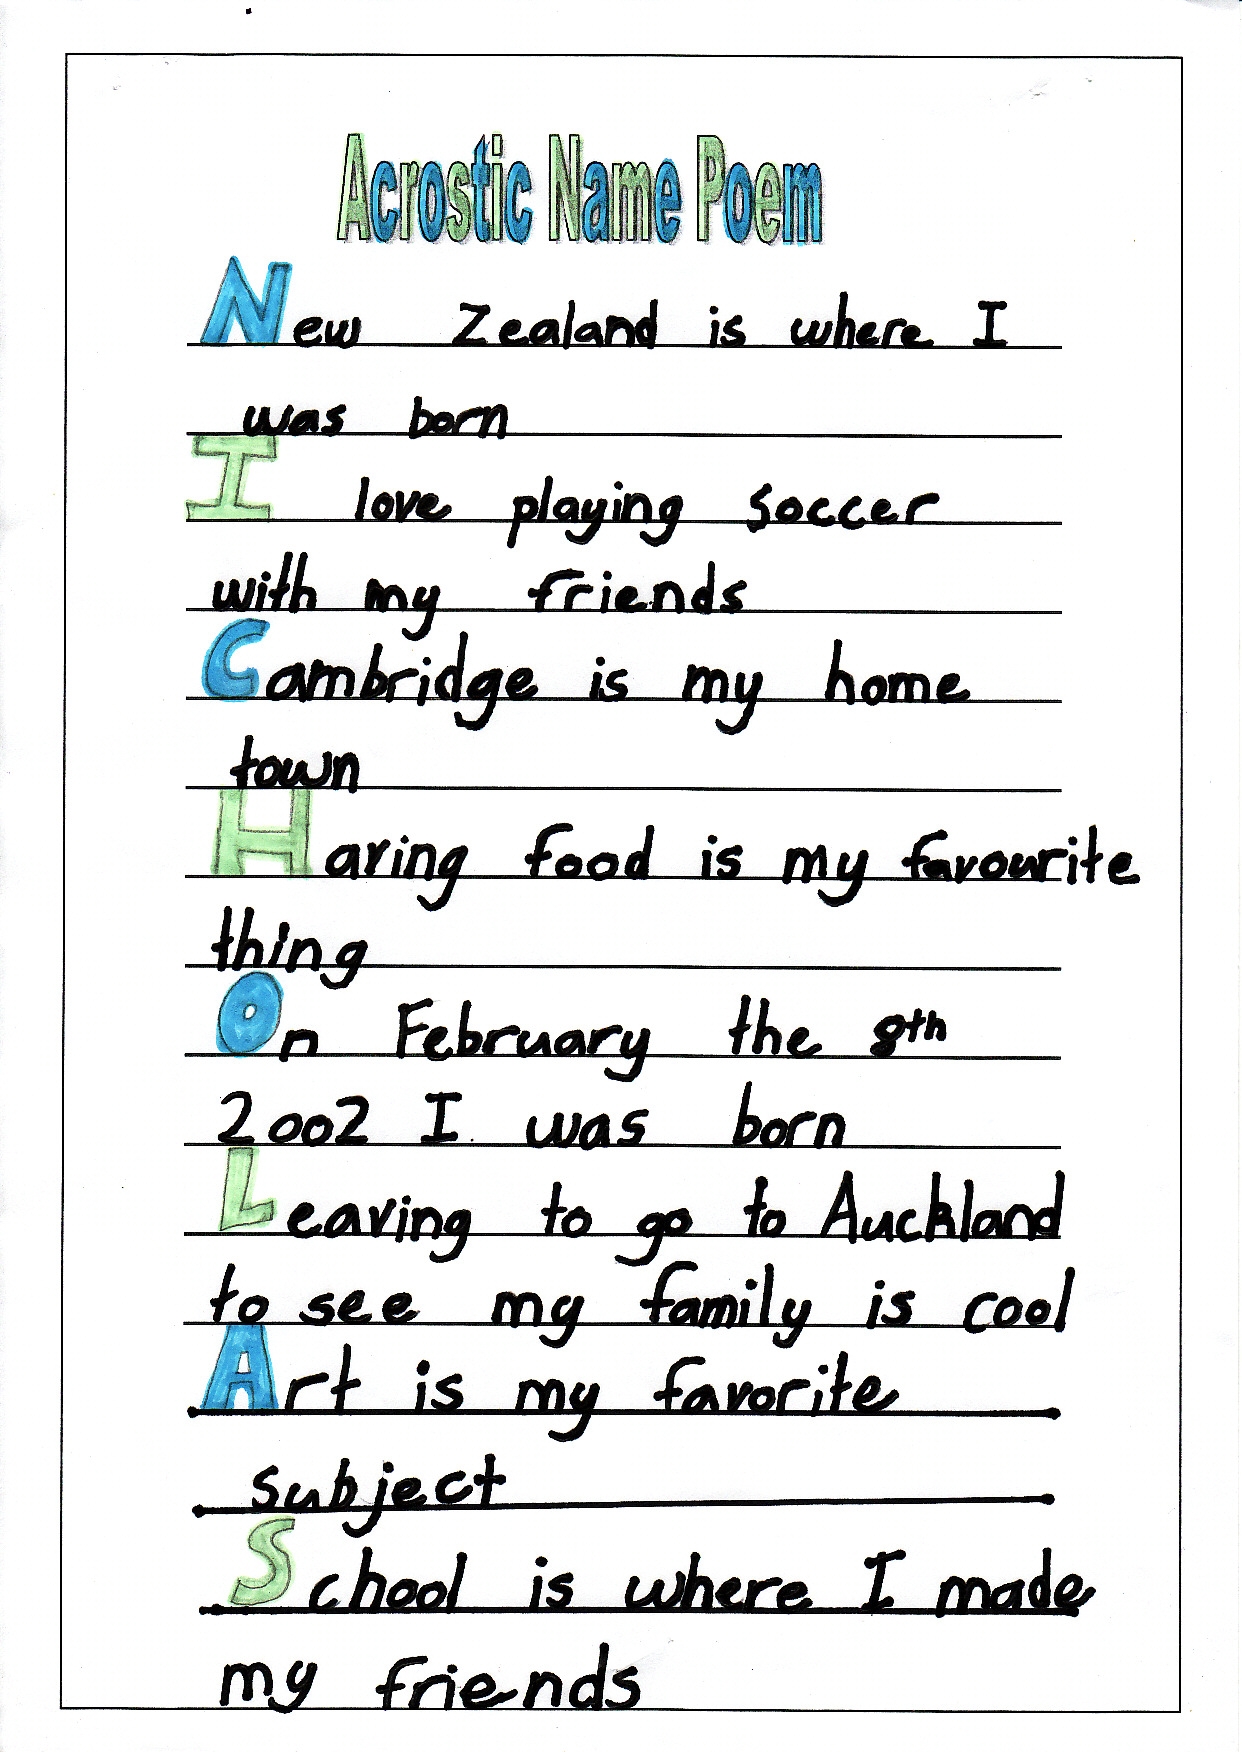 Acrostic Name Poem
New Zealand is where I
was born
I love playing soccer
with my friends
Cambridge is my home
town
Having food is my favourite
thing
On February the 8th
2002 I was born
Leaving to go to Auckland
to see my family is cool
Art is my favorite
subject
School is where I made
my friends